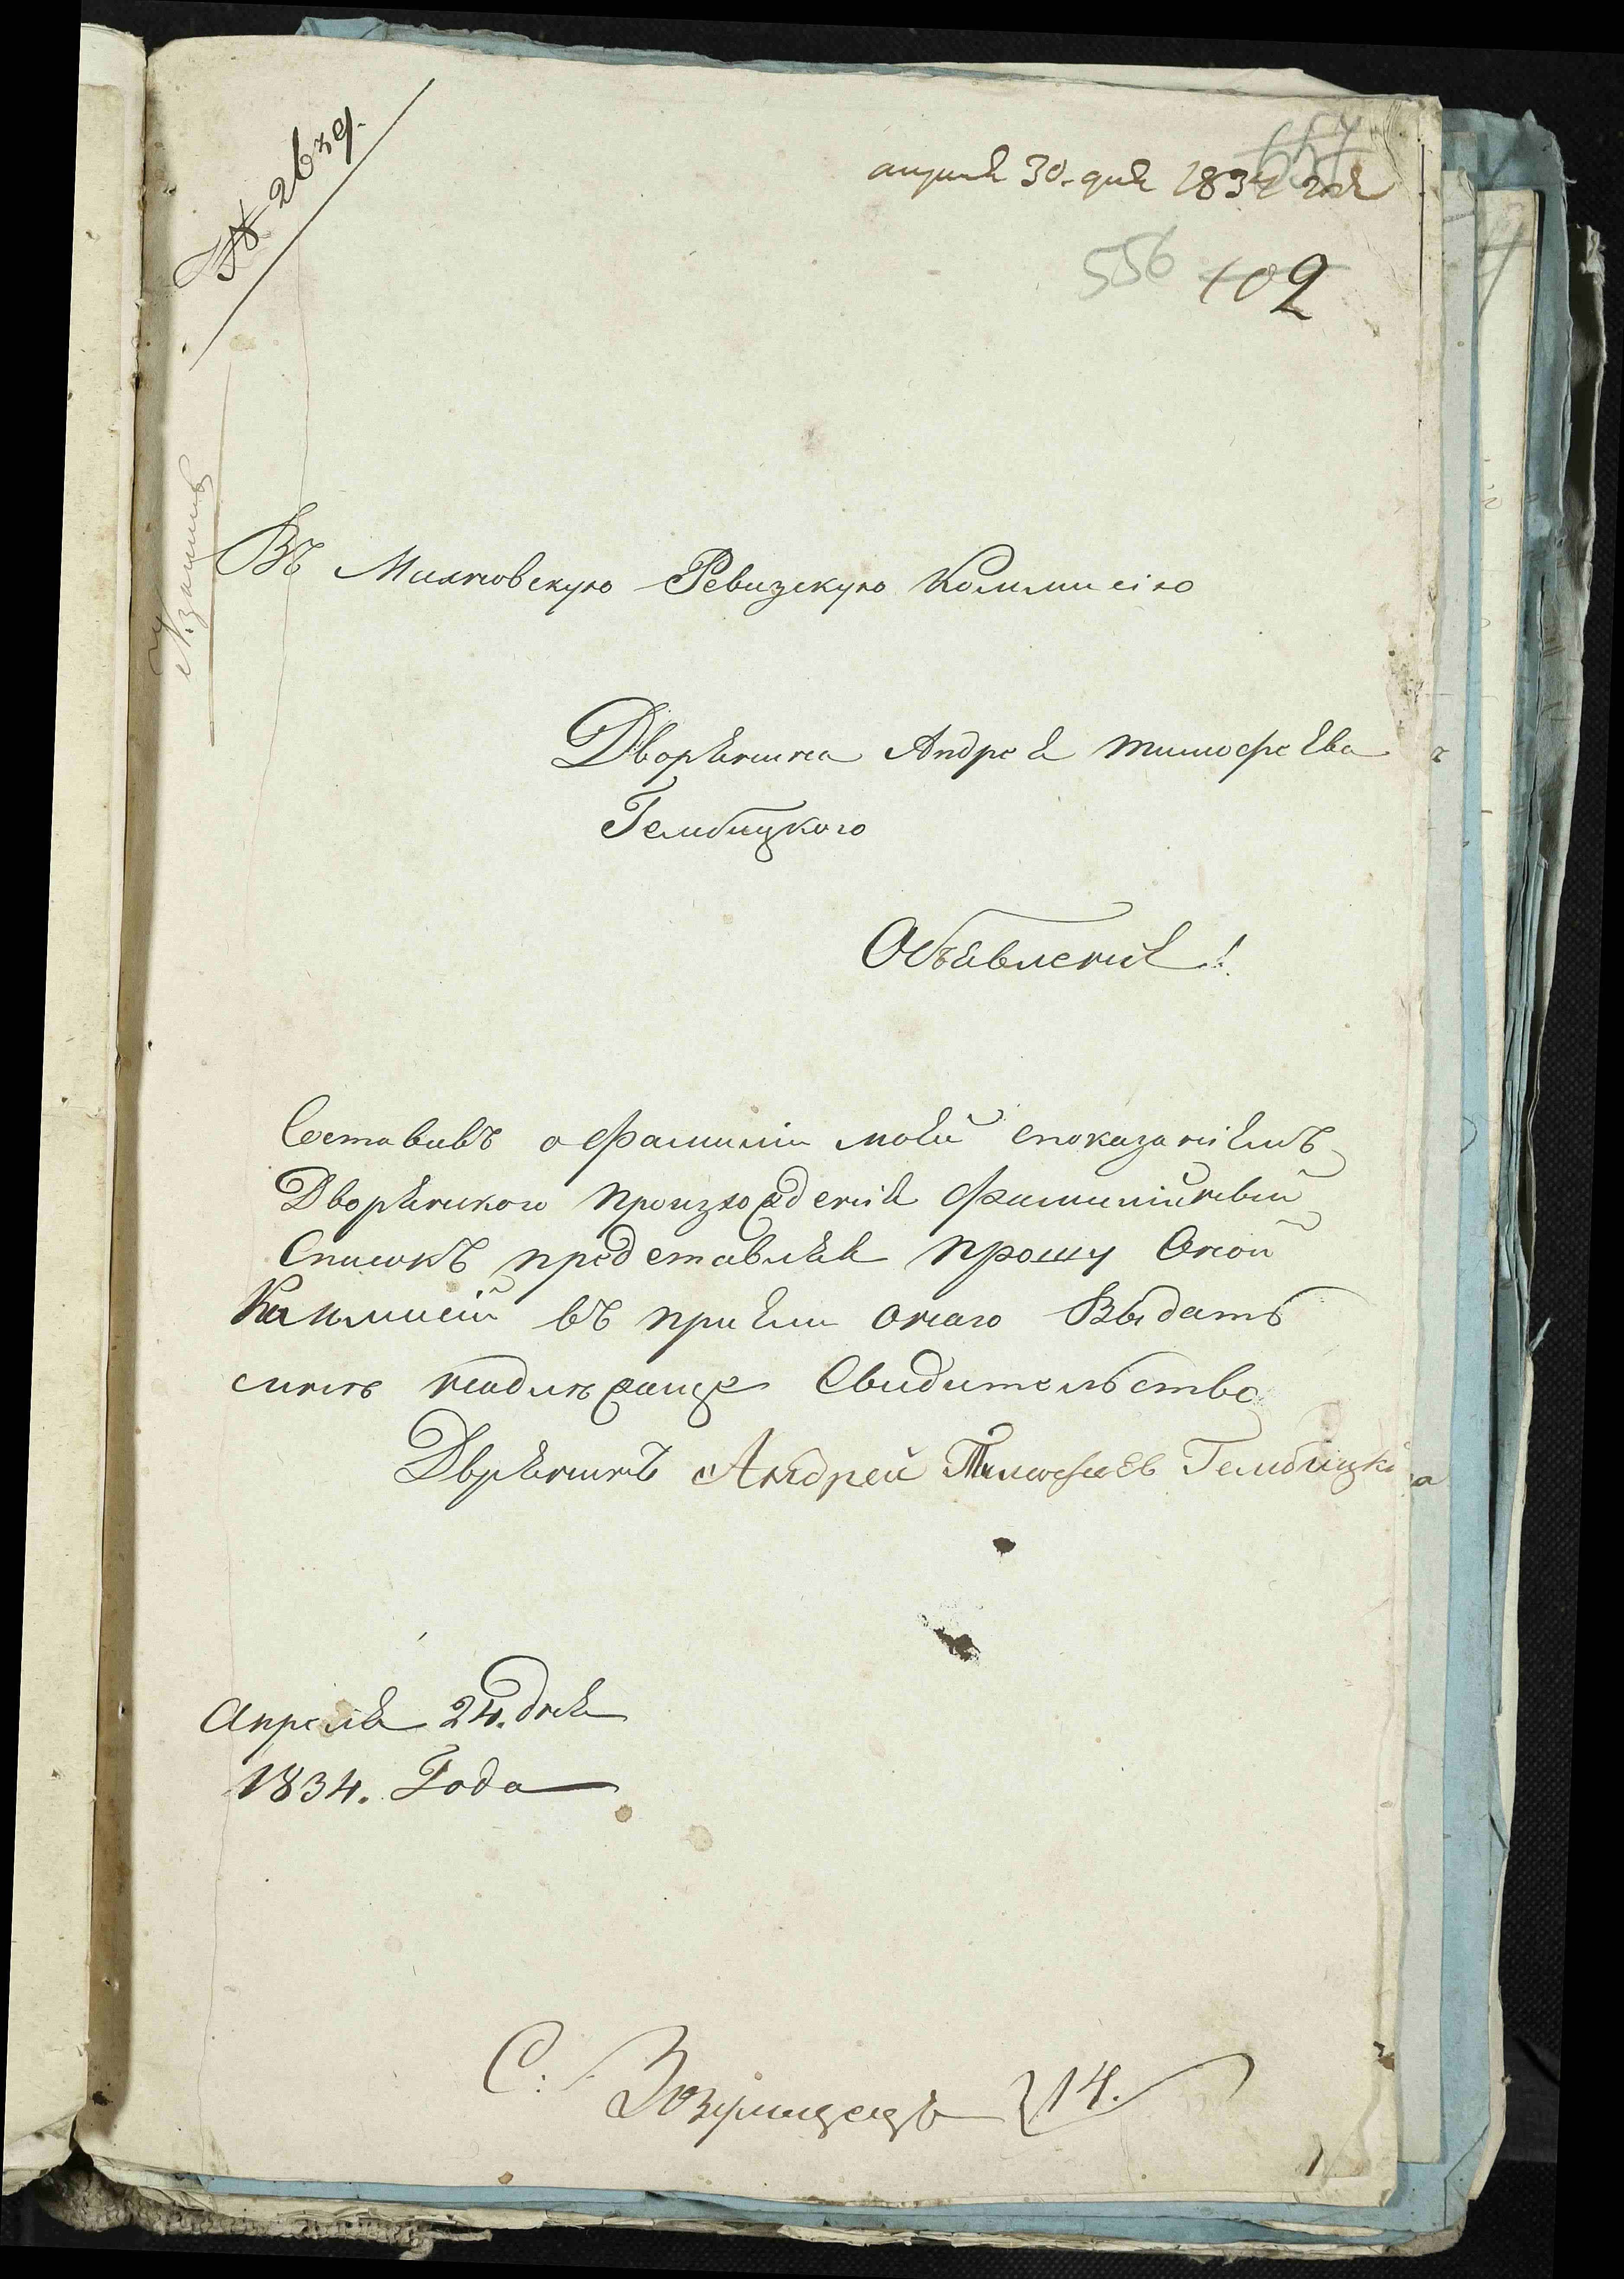 № 2639.
апреля 30. дня 1834 года
557
556 102
Въ Ревизскую Коммисію
Дворянина Андрея тимофеева
Гембицкого
Объявленія!
Составивъ о фамиліи моей споказаніемъ
Дворянского произхожденія фамилійный
Списокъ представляя прошу Оной
Коммисіи въ пріеми онаго Выдать
мнѣ надлежаще Свидительство
Дврянинъ Андрей Тимофеевъ Гембицкі
Апреля 24. дня
1834. Года
С: 14.